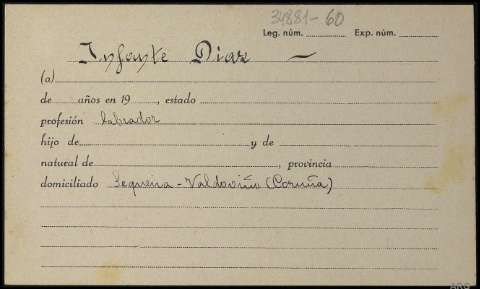 34881-60
Leg. núm. Exp. núm.
Infante Diaz —
(a)
de años en 19 , estado
profesión labrador
hijo de y de
natural de , provincia
domiciliado Sequeira - Valdoviño (Coruña)